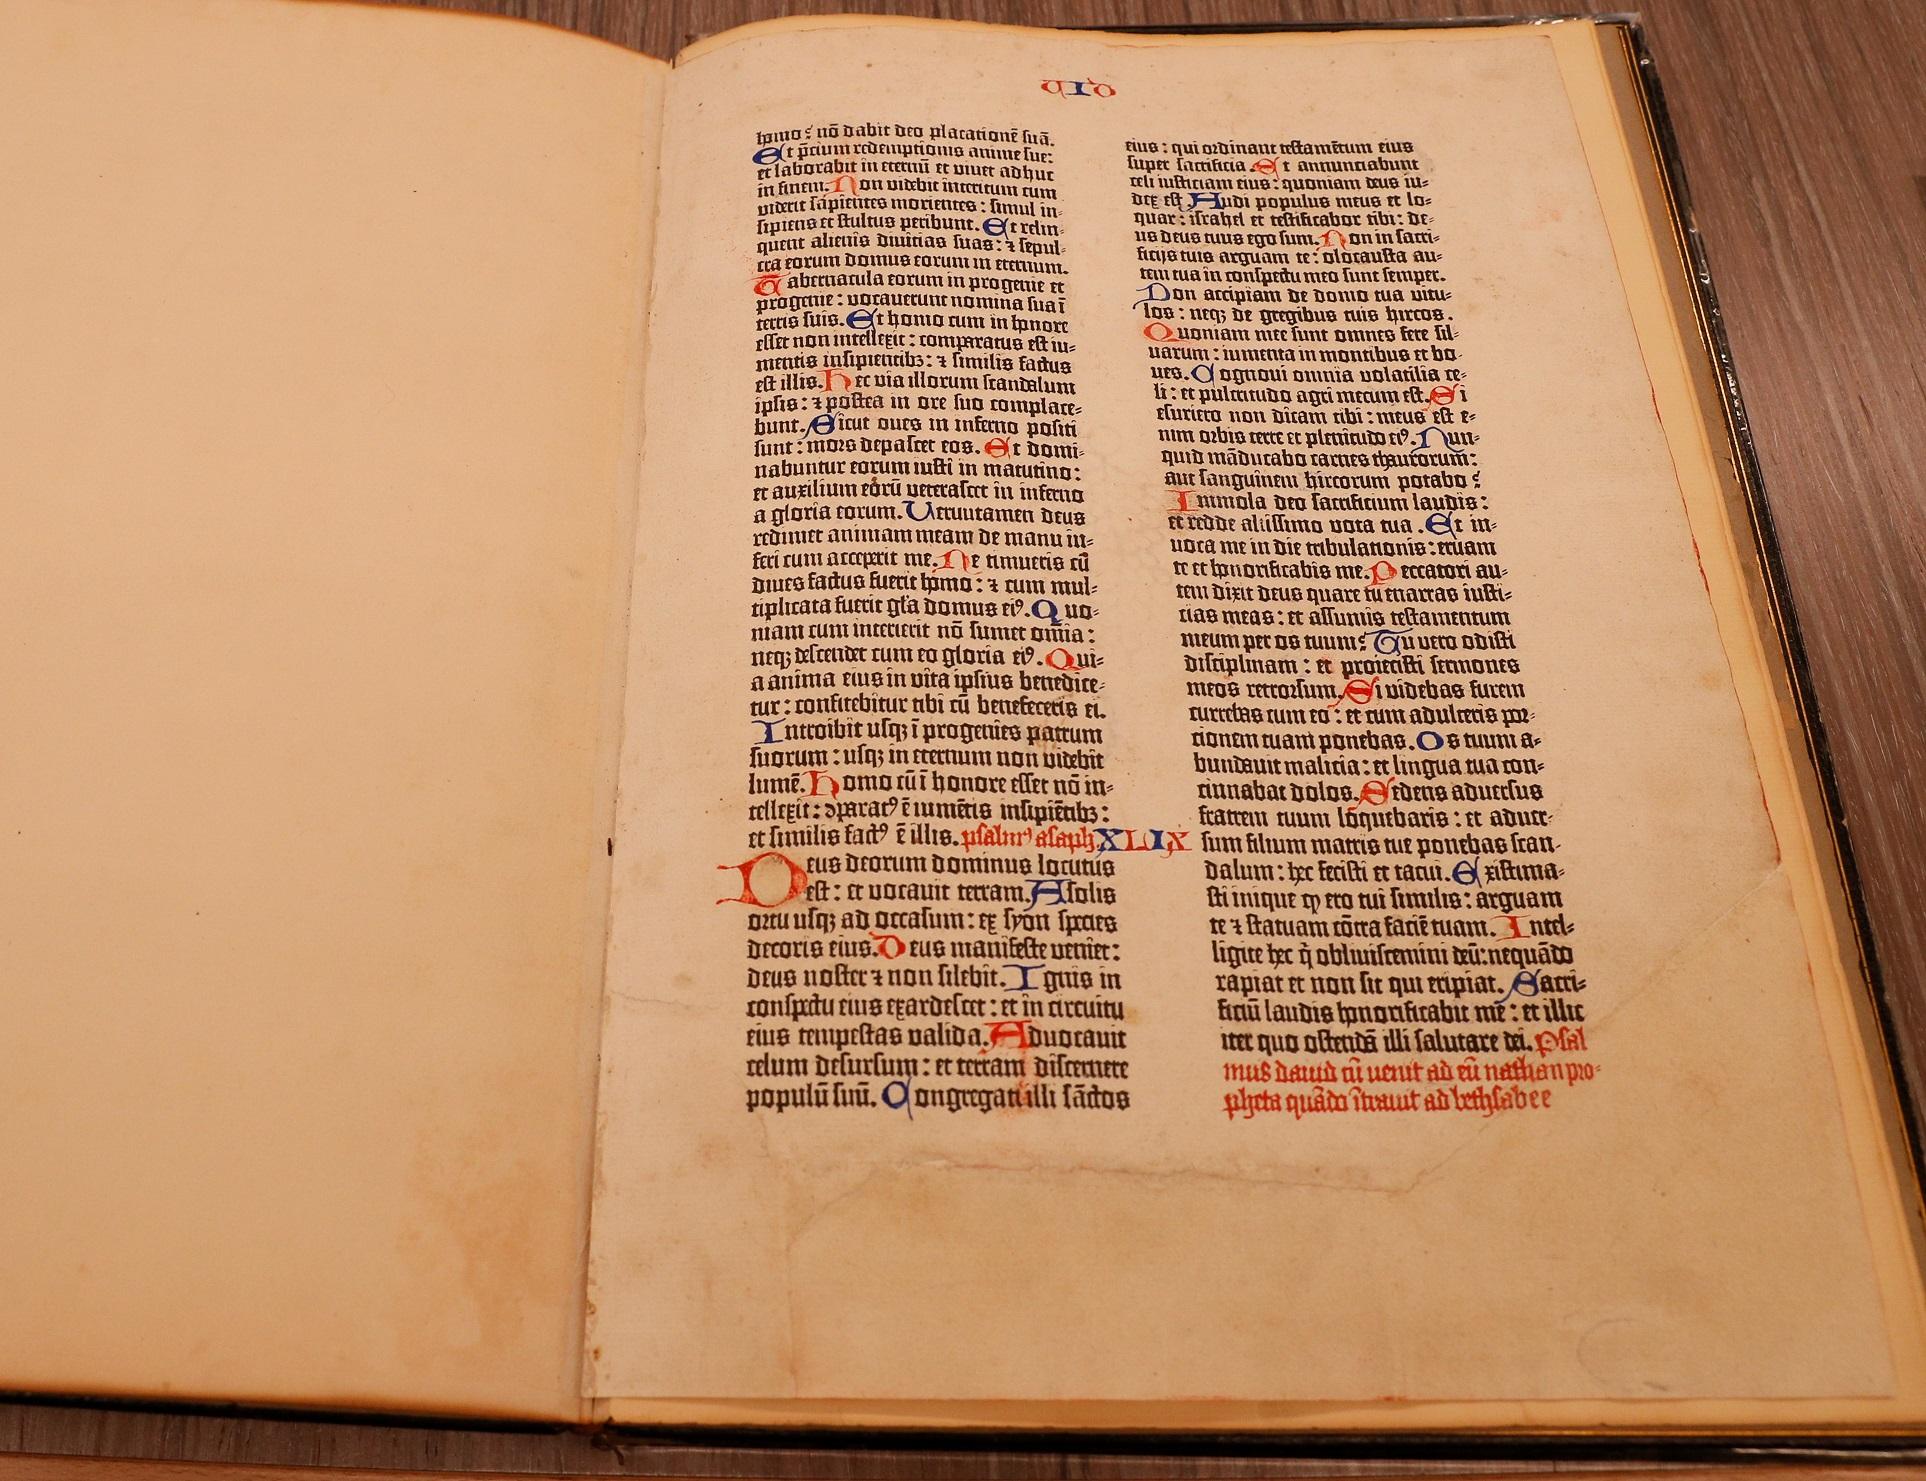 VID
homo: nō dabit deo placationē suā.
Et p̄cium redemptionis anime sue:
et laborabit in eternū et vivet adhuc
in finem. Non videbit interitum cum
viderit sapientes morientes: simul in=
sipiens et stultus peribunt. Et relin=
quent alienis divitias suas: ⁊ sepul=
cra eorum domus eorum in eternum.
Tabernacula eorum in progenie et
progenie: vocaverunt nomina sua ī
terris suis. Et homo cum in honore
esset non intellexit: comparatus est iu=
mentis insipientibꝫ: ⁊ similis factus
est illis. Hec via illorum scandalum
ipsis: ⁊ postea in ore suo complace=
bunt. Sicut oves in inferno positi
sunt: mors depascet eos. Et domi=
nabuntur eorum iusti in matutino:
et auxilium eorū veterascet in inferno
a gloria eorum. Verūtamen deus
redimet animam meam de manu in=
feri cum acceperit me. Ne timueris cū
dives factus fuerit homo: ⁊ cum mul=
tiplicata fuerit gl'a domus eiꝰ. Quo=
niam cum interierit nō sumet omīa:
neqꝫ descendet cum eo gloria eiꝰ. Qui=
a anima eius in vita ipsius benedice=
tur: confitebitur tibi cū benefeceris ei.
Introibit usqꝫ ī progenies patrum
suorum: usqꝫ in eternum non videbit
lumē. Homo cū ī honore esset nō in=
tellexit: ꝯparatꝰ ē iumētis insipiētibꝫ:
et similis factꝰ ē illis. psalmꝰ asaph. XLIX
Deus deorum dominus locutus
est: et vocavit terram. A solis
ortu usqꝫ ad occasum: ex syon species
decoris eius. Deus manifeste veniet:
deus noster ⁊ non silebit. Ignis in
conspectu eius exardescet: et in circuitu
eius tempestas valida. Advocavit
celum desursum: et terram discernere
populū suū. Congregate illi sāctos
eius: qui ordinant testamētum eius
super sacrificia. Et annunciabunt
celi iusticiam eius: quoniam deus iu=
dex est. Audi populus meus et lo=
quar: israhel et testificabor tibi: de=
us deus tuus ego sum. Non in sacri=
ficijs tuis arguam te: olocausta au=
tem tua in conspectu meo sunt semper.
Non accipiam de domo tua vitu=
los: neqꝫ de gregibus tuis hircos.
Quoniam mee sunt omnes fere sil=
varum: iumenta in montibus et bo=
ves. Cognovi omnia volatilia ce=
li: et pulcritudo agri mecum est. Si
esuriero non dicam tibi: meus est e=
nim orbis terre et plenitudo eiꝰ. Nun=
quid māducabo carnes thaurorum:
aut sanguinem hircorum potabo?
Immola deo sacrificium laudis:
et redde altissimo vota tua. Et in=
voca me in die tribulationis: eruam
te et honorificabis me. Peccatori au=
tem dixit deus quare tu enarras iusti=
cias meas: et assumis testamentum
meum per os tuum? Tu vero odisti
disciplinam: et proiecisti sermones
meos retrorsum. Si videbas furem
currebas cum eo: et cum adulteris por=
cionem tuam ponebas. Os tuum a=
bundavit malicia: et lingua tua con=
cinnabat dolos. Sedens adversus
fratrem tuum loquebaris: et adver=
sum filium matris tue ponebas scan=
dalum: hec fecisti et tacui. Existima=
sti inique ꝙ ero tui similis: arguam
te ⁊ statuam cōtra faciē tuam. Intel=
ligite hec q̇ obliviscimini deū: nequādo
rapiat et non sit qui eripiat. Sacri=
ficiū laudis honorificabit me: et illic
iter quo ostendā illi salutare dei. Psal
mus david cū venit ad eū nathan pro=
pheta quādo ītravit ad bethsabee